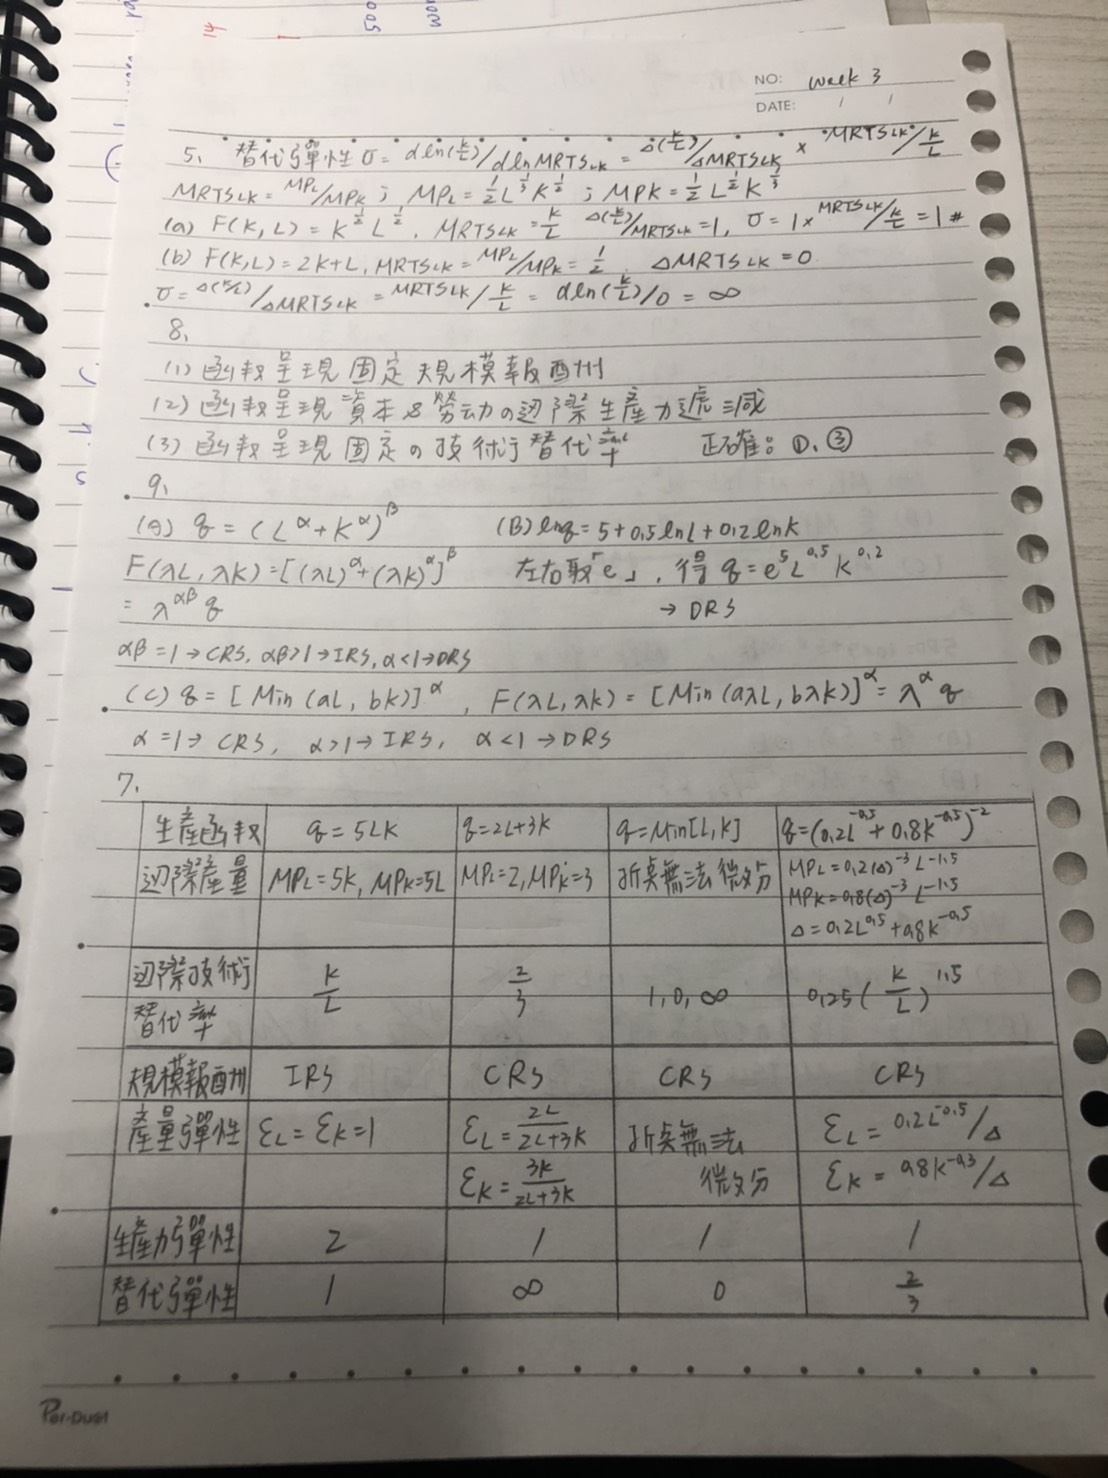 NO: Week 3
DATE: / /
5、 替代彈性 σ = dln(K/L)/dlnMRTS_LK = Δ(K/L)/ΔMRTS_LK × MRTS_LK/(K/L)
MRTS_LK = MP_L/MP_K ; MP_L = 1/2 L^(1/3) K^(1/2) ; MPK = 1/2 L^(1/2) K^(1/3)
(a) F(K, L) = K^(1/2) L^(1/2), MRTS_LK = K/L Δ(K/L)/MRTS_LK = 1, σ = 1 × MRTS_LK/(K/L) = 1 #
(b) F(K,L) = 2K+L, MRTS_LK = MP_L/MP_K = 1/2 ΔMRTS_LK = 0
σ = Δ(K/L)/ΔMRTS_LK = MRTS_LK/(K/L) = dln(K/L)/0 = ∞
8、
(1) 函数呈現固定規模報酬州
(2) 函数呈現資本&勞动の边際生產力遞減
(3) 函数呈現固定の技術替代率 正確：①、③
9、
(A) q = (L^α + K^α)^β (B) lnq = 5 + 0.5lnL + 0.2lnK
F(λL, λK) = [(λL)^α + (λK)^α]^β 左右取「e」, 得 q = e^5 L^0.5 K^0.2
= λ^αβ q → DRS
αβ = 1 → CRS, αβ > 1 → IRS, α < 1 → DRS
(C) q = [Min (aL, bK)]^α, F(λL, λK) = [Min (aλL, bλK)]^α = λ^α q
α = 1 → CRS, α > 1 → IRS, α < 1 → DRS
7、
生產函权 q = 5LK q = 2L+3K q = Min[L, K] q = (0.2L^-0.5 + 0.8K^-0.5)^-2
边際產量 MP_L = 5K, MP_K = 5L MP_L = 2, MP_K = 3 折点無法微分 MP_L = 0.2(Δ)^-3 L^-1.5
MPK = 0.8(Δ)^-3 L^-1.5
Δ = 0.2L^0.5 + 0.8K^-0.5
边際技術替代率 K/L 2/3 1, 0, ∞ 0.25 (K/L)^1.5
規模報酬 IRS CRS CRS CRS
產量彈性 ε_L = ε_K = 1 ε_L = 2L/(2L+3K) 折点無法微分 ε_L = 0.2L^-0.5/Δ
ε_K = 3K/(2L+3K) ε_K = 0.8K^-0.3/Δ
生產力彈性 2 1 1 1
替代彈性 1 ∞ 0 2/3
Per-Duet